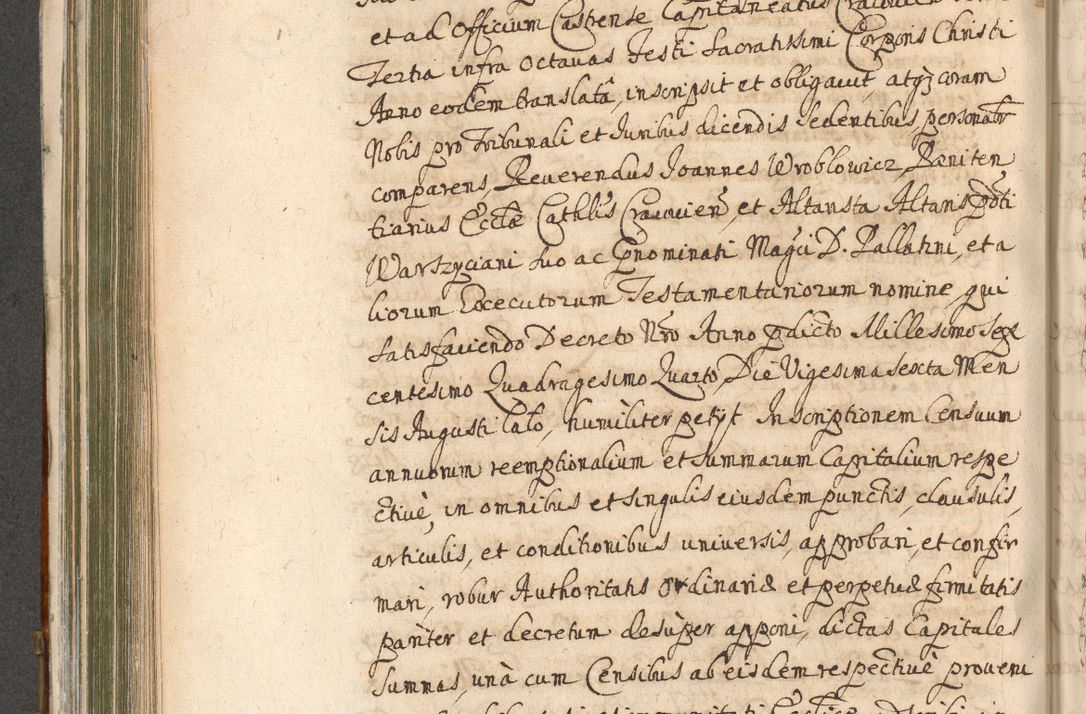 et ad Officium Castrense Capitaneatus
Tertia infra Octavas Festi Sacratissimi Corporis Christi
Anno eodem translatã, inscripsit et obligavit, atq; coram
Nobis pro Tribunali et Juribus dicendis Sedentibus personalr
comparens, Reverendus Joannes Wroblowicz Pæniten
tiarius Ecclæ Cathlis Cracovieñ et Altarista Altaris pdti
Warszyciani suo ac pnominati Magci D. Pallatini, et a
liorum Exececutorum Testamentariorum nomine, qui
satisfaciendo Decreto Nro Anno pdicto Millesimo Sep
centesimo Quadragesimo Quarto, Die Vigesima Sexta Men
sis Augusti lato, humiliter petijt Inscriptionem Censuum
annuorum reemptionalium et Summarum Capitalium respe
ctivè, in omnibus et singulis eiusdem punctis, clausulis,
articulis, et conditionibus universis, approbari, et confir
mari, robur Authoritatis Ordinariæ et perpetuæ firmitatis
pariter et decretum desuper apponi, dictas Capitales
Summas, unà cum Censibus ab eisdem respectivè proveni